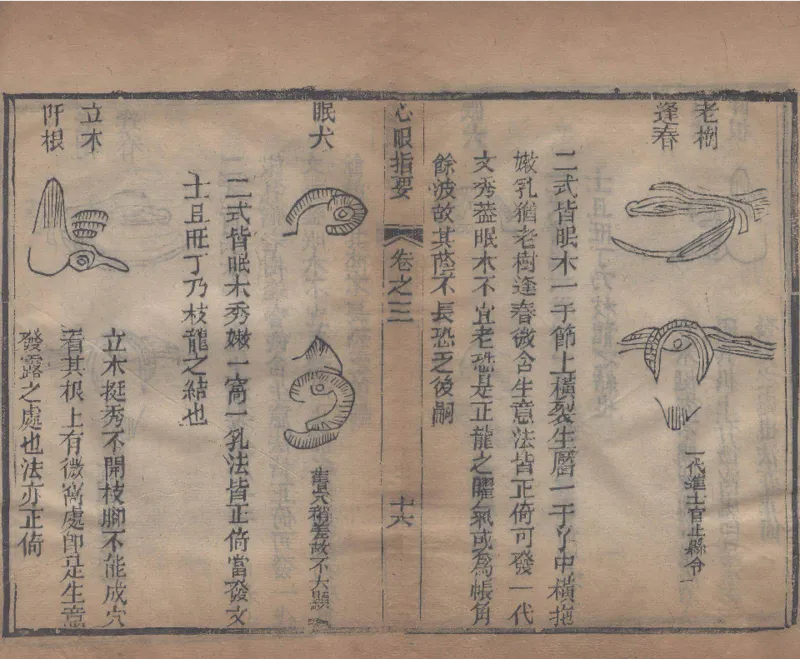 老樹
逢春
一代進士官止縣令
二式皆眠木一于節上橫裂生靨一于了中橫拖
嫩乳猶老樹逢春微含生意法皆正倚可發一代
文秀葢眠木不宜老恐是正龍之曜氣或爲帳角
餘波故其蔭不長恐乏後嗣
心眼指要
卷之三
十六
眠犬
舊穴稍差故不大顯
二式皆眠木秀嫩一窩一乳法皆正倚當發文
士且旺丁乃枝龍之結也
立木
阡根
立木挺秀不開枝腳不能成穴
看其根上有微窩處卽是生意
發露之處也法亦正倚